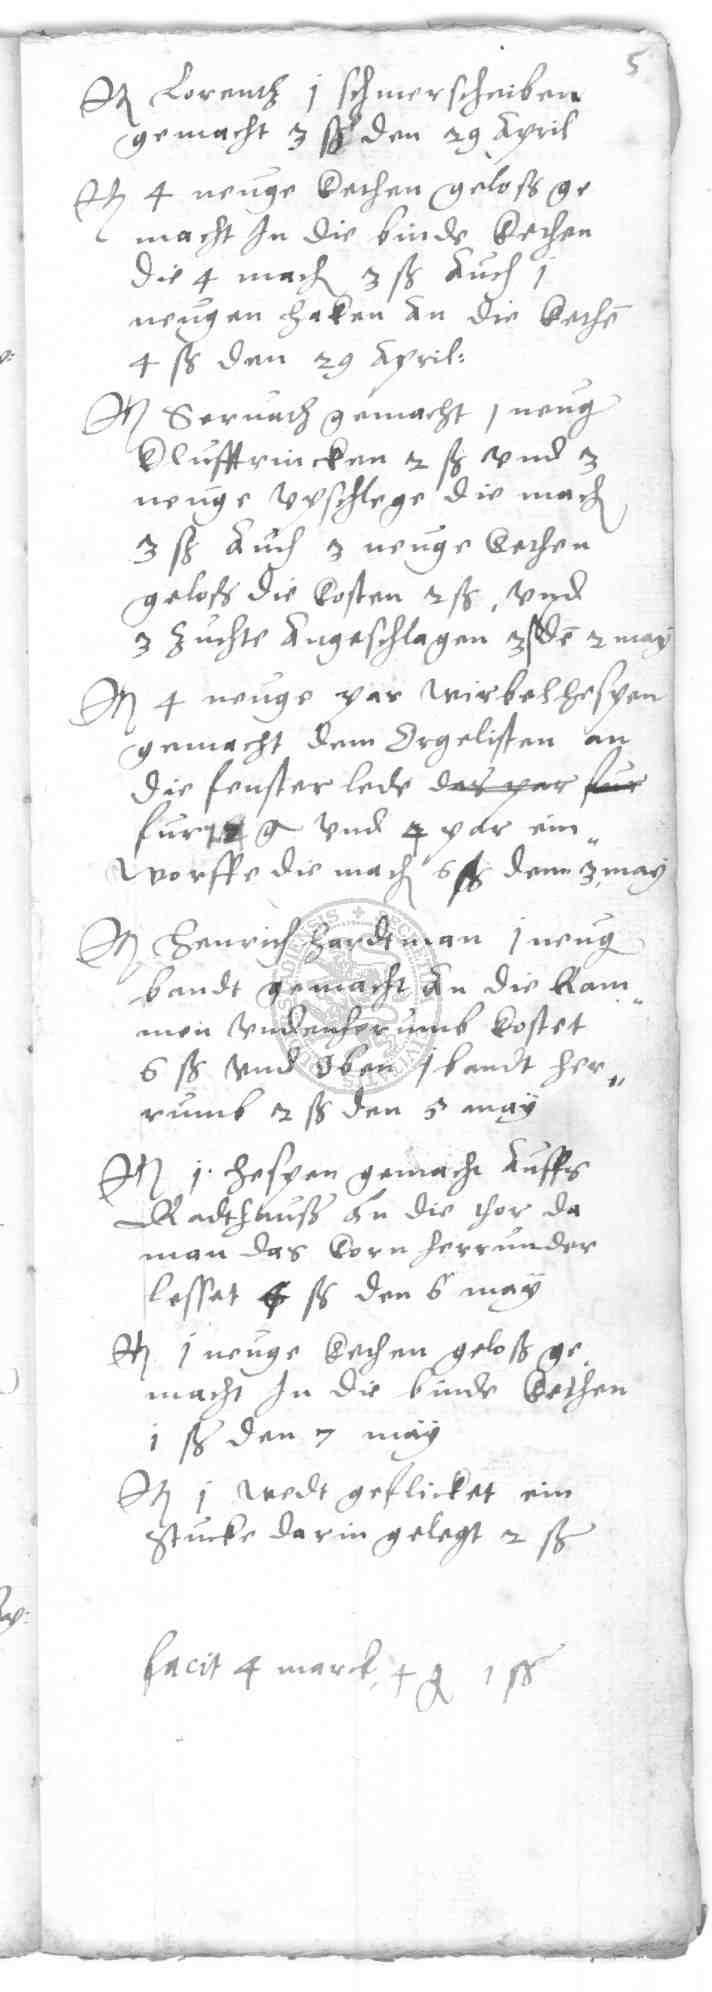 5
It Lorentz j schmerscheiben
gemacht 3 ß den 29 April
It 4 neuge kethen geloß ge
macht In die binde kethen
die 4 mach 3 ß Auch j
neugen haken An die kethē
4 ß den 29 April:
It Seruatz gemacht j neug
klufftrincken 2 ß vnd 3
neuge vpschlege die mach
3 ß Auch 3 neuge kethen
geloß die kosten 2 ß, vnd
3 huchte Angeschlagen 3 ß dē 2 maÿ
It 4 neuge par wirbelhespen
gemacht dem Orgelisten an
die fenster lede das par fur
fur 12 g vnd 4 par ein„
worffe die mach 6 ß denn 3 maÿ
It Henrich Hardtman j neug
bandt gemacht An die Ram„
men vndenherumb kostet
6 ß vnd Oben j bandt her„
rumb 2 ß den 5 maÿ
It j. hespen gemacht Auffs
Radthauß An die thor da
man das korn herrunder
lesset 4 ß den 6 maÿ
It j neuge kethen geloß ge
macht In die binde kethen
j ß den 7 maÿ
It j wedt geflicket ein
stucke darin gelegt 2 ß
facit 4 marck, 4 g 1 ß